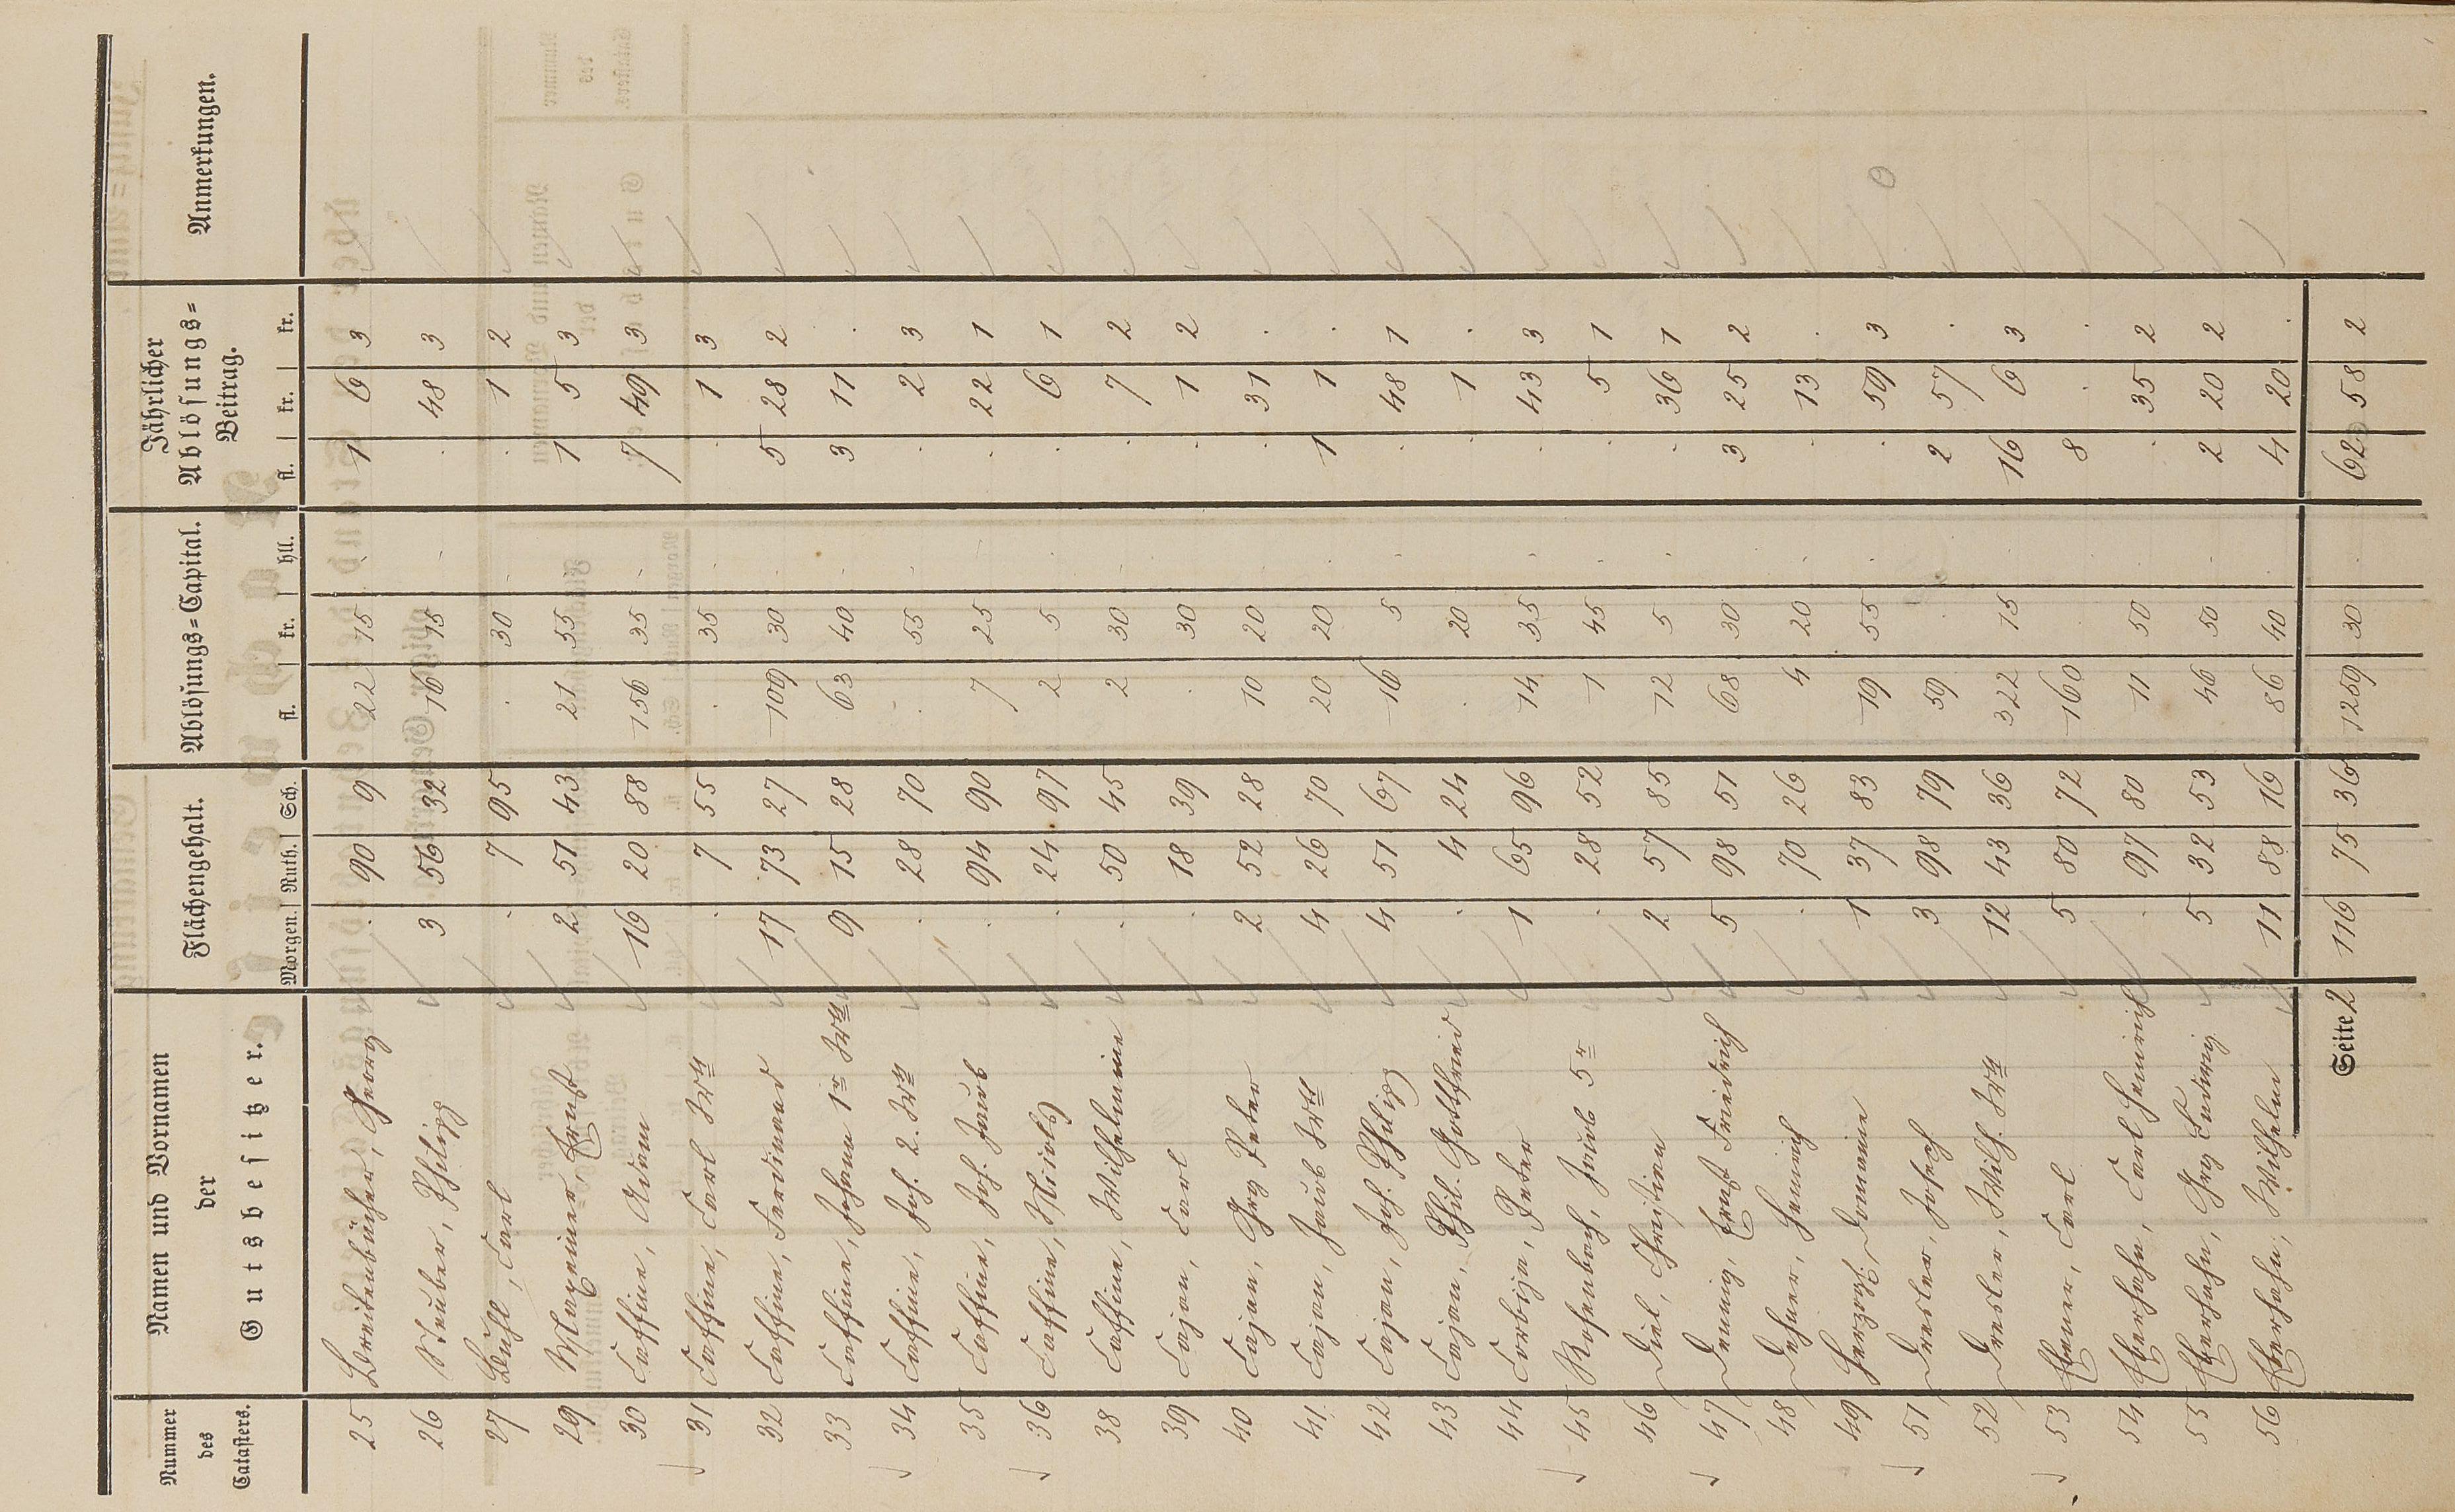 Nummer des Catasters. | Namen und Vornamen der Gutsbesitzer. | Flächengehalt. | Ablösungs=Capital. | Jährlicher Ablösungs=Beitrag. | Anmerkungen.
Morgen. | Ruth. | Sch. | fl. | kr. | hll. | fl. | kr. | kr.
25 Breitenbücher, Georg . 90 9 22 15 . 1 6 3
26 Philipp 3 56 32 16 15 . . 48 3
27 Bühl, Carl . 7 95 . 30 . . 1 2
29 Ernst 2 51 43 21 55 . 1 5 3
30 Caffine, Adam 16 20 88 156 35 . 7 49 3
31 Caffine, Carl Wtt . 7 55 . 35 . . 1 3
32 Caffine, Ferdinand 17 73 27 109 30 . 5 28 2
33 Caffine, Johann 1r Wtt 9 15 28 63 40 . 3 11 .
34 Caffine, Joh. 2. Wtt . 28 70 . 55 . . 2 3
35 Caffine, Joh. Jacob . 94 90 7 25 . . 22 1
36 Caffine, . 24 97 2 5 . . 6 1
38 Caffine, Wilhelmine . 50 45 2 30 . . 7 2
39 Cajan, Carl . 18 39 . 30 . . 1 2
40 Cajan, Grg Peter 2 52 28 10 20 . . 31 .
41. Cajan, Jacob Wtt 4 26 70 20 20 . 1 1 .
42 Cajan, Joh. Philipp 4 51 67 16 5 . . 48 1
43 Cajan, Phil. Gottfried . 4 24 . 20 . . 1 .
44 Corbijn, Peter 1 65 96 14 35 . . 43 3
45 Rosenbach, Jacob 5r . 28 52 1 45 . . 5 1
46 Diel, Christian 2 57 85 12 5 . . 36 1
47 Dennig, Ernst Friedrich 5 98 51 68 30 . 3 25 2
48 Dehner, Heinrich . 70 26 4 20 . . 13 .
49 Herzogl. Domaine 1 37 83 19 55 . . 59 3
51 Dresler, Joseph 3 98 79 59 . 2 57 .
52 Dresler, Wilh. Wtt 12 43 36 322 15 . 16 6 3
53 Ebener, Carl 5 80 72 160 . 8 . .
54 Eberhahn, Carl Heinrich . 97 80 11 50 . . 35 2
55 Eberhahn, Grg Ludwig 5 32 53 46 50 . 2 20 2
56 Eberhahn, Wilhelm 11 88 16 86 40 . 4 20 .
Seite 2 116 75 36 1259 30 . 62 58 2